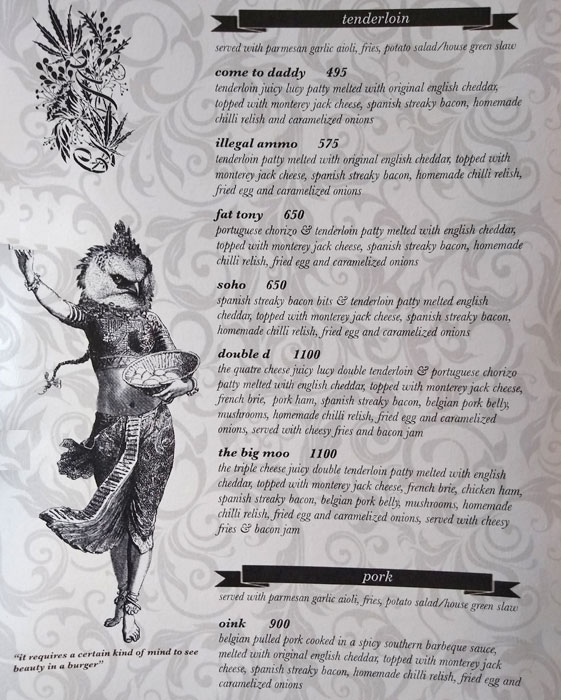 tenderloin
served with parmesan garlic aioli, fries, potato salad/house green slaw
come to daddy 495
tenderloin juicy lucy patty melted with original english cheddar,
topped with monterey jack cheese, spanish streaky bacon, homemade
chilli relish and caramelized onions
illegal ammo 575
tenderloin patty melted with original english cheddar, topped with
monterey jack cheese, spanish streaky bacon, homemade chilli relish,
fried egg and caramelized onions
fat tony 650
portuguese chorizo & tenderloin patty melted with english cheddar,
topped with monterey jack cheese, spanish streaky bacon, homemade
chilli relish, fried egg and caramelized onions
soho 650
spanish streaky bacon bits & tenderloin patty melted english
cheddar, topped with monterey jack cheese, spanish streaky bacon,
homemade chilli relish, fried egg and caramelized onions
double d 1100
the quatre cheese juicy lucy double tenderloin & portuguese chorizo
patty melted with english cheddar, topped with monterey jack cheese,
french brie, pork ham, spanish streaky bacon, belgian pork belly,
mushrooms, homemade chilli relish, fried egg and caramelized
onions, served with cheesy fries and bacon jam
the big moo 1100
the triple cheese juicy double tenderloin patty melted with english
cheddar, topped with monterey jack cheese, french brie, chicken ham,
spanish streaky bacon, belgian pork belly, mushrooms, homemade
chilli relish, fried egg and caramelized onions, served with cheesy
fries & bacon jam
pork
served with parmesan garlic aioli, fries, potato salad/house green slaw
oink 900
belgian pulled pork cooked in a spicy southern barbeque sauce,
melted with original english cheddar, topped with monterey jack
cheese, spanish streaky bacon, homemade chilli relish, fried egg and
caramelized onions
"it requires a certain kind of mind to see
beauty in a burger"